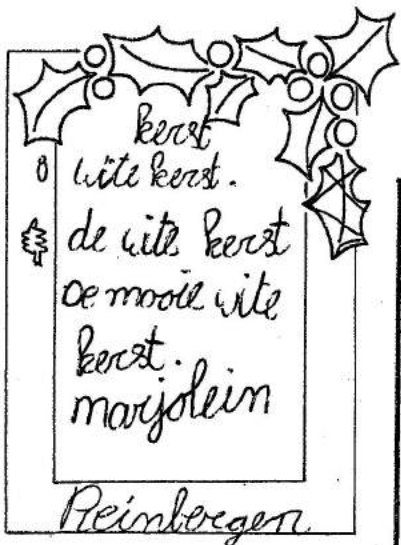 kerst
wite kerst.
de wite kerst
de mooie wite
kerst.
marjolein
Reinbergen